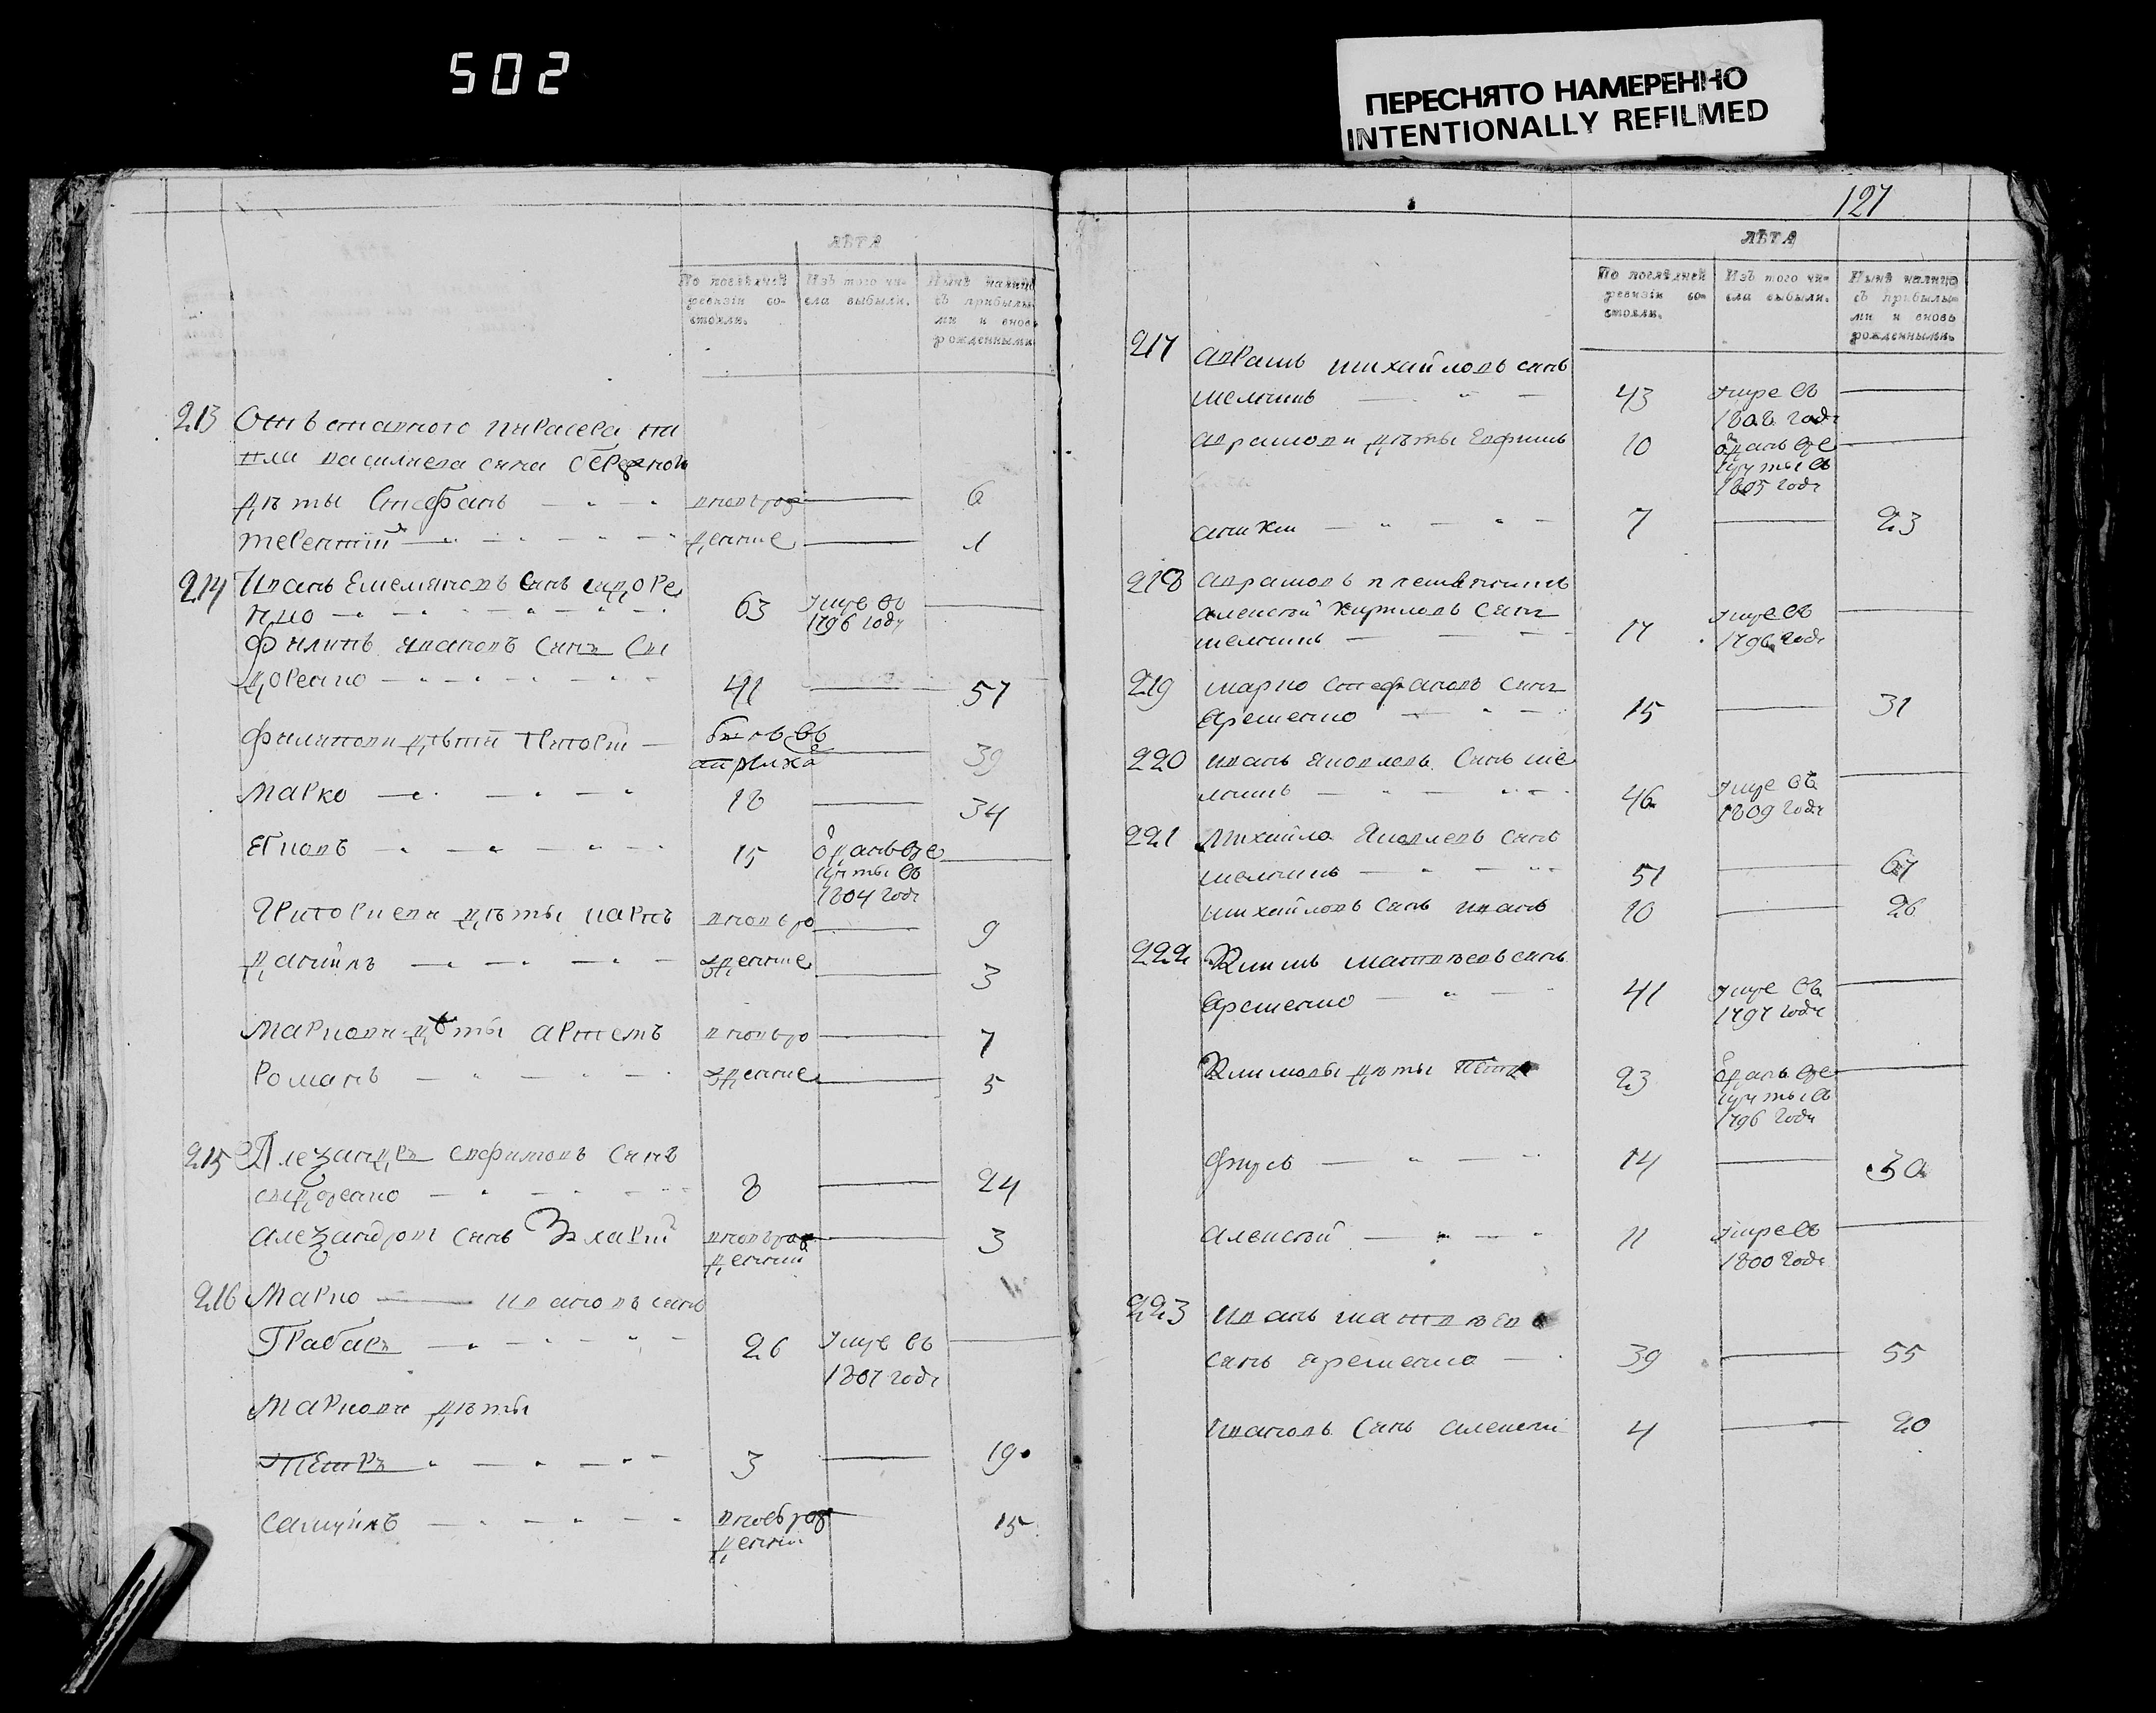 502
ПЕРЕСНЯТО НАМЕРЕННО
INTENTIONALLY REFILMED
ЛѢТА
По послѣдней ревизіи состояли.
Изъ того числа выбыли.
Нынѣ налицо съ прибылыми и вновь рожденными
213 Отставного
василиева сина
дѣти Стефанъ вновъ рож 6
терентий денние 1
214 Иванъ Емемяновъ синъ сидоре
нко 63 умре въ 1796 году
филипъ ивановъ синъ Си
дорепко 41 57
филипови дѣти Григорий билъ въ 39
Марко 18 34
15 отданъ въ рекруты въ 1804 году
Григориеви дѣти карпъ вновъ ро 9
данйилъ жденние 3
Маркови дѣти артемъ вновъ ро 7
Романъ жденние 5
215 Алезандръ евфимовъ синъ
сидоренко 8 24
алезандровъ синъ Захарий вновъ рож 3
денний
216 Марко ивановъ синъ
Грабаръ 26 умре въ
1807 году
Маркови дѣти
петръ 3 19
самуилъ вновъ рож 15
денний
127
ЛѢТА
По послѣдней ревизіи состояли.
Изъ того числа выбыли.
Нынѣ налицо съ прибылыми и вновь рожденными.
217 аврамъ михайловъ синъ
43 умре въ
1808 году
аврамови дѣти Евфимъ 10 отданъ въ рекруты въ 1805 году
7 23
218 аврамовъ племянникъ
алексѣй кириловъ синъ
17 умре въ 1796 году
219 марко стефановъ синъ
яременко 15 31
220 иванъ яковлевъ синъ
46 умре въ
1809 году
221 Михайло Яковлевъ синъ
51 67
михайловъ синъ иванъ 10 26
222 Климъ матвѣевъ синъ
яременко 41 умре въ
1797 году
Климовы дѣти петръ 23 отданъ въ рекруты въ 1796 году
14 30
алексѣй 11 умре въ
1800 году
223 иванъ матвѣевъ
синъ яременко 39 55
ивановъ синъ алексѣй 4 20